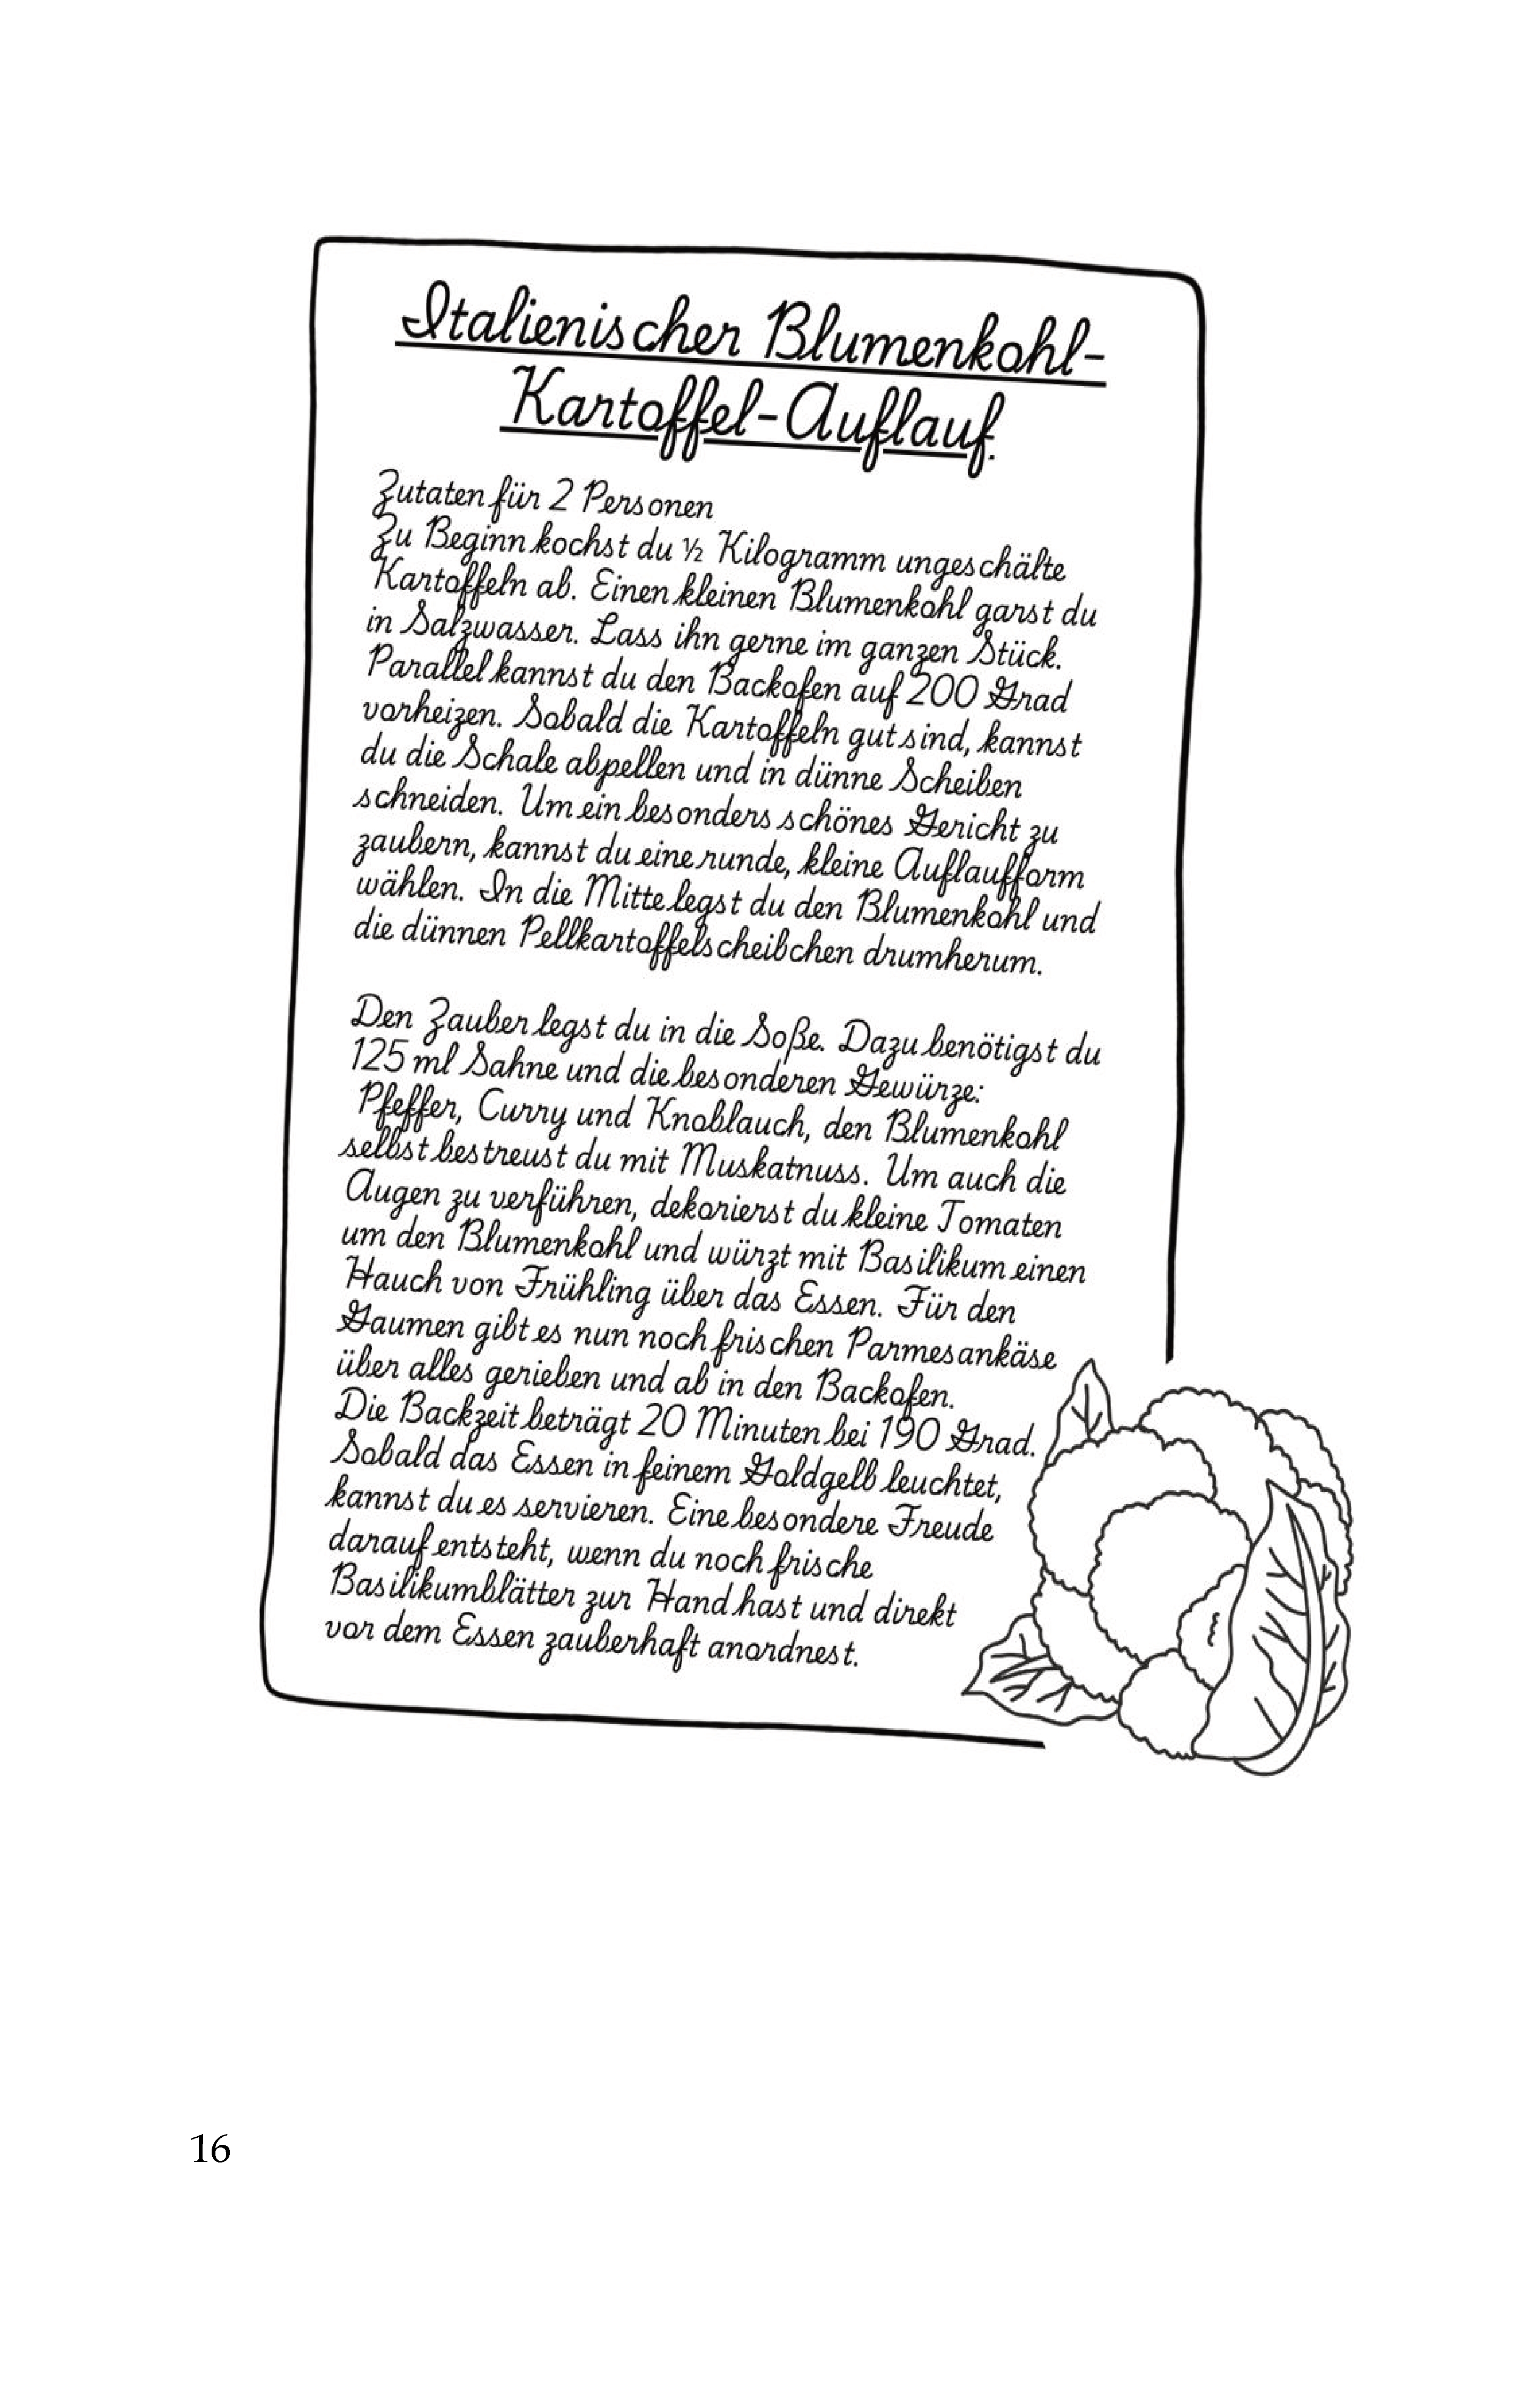 Italienischer Blumenkohl-
Kartoffel-Auflauf.
Zutaten für 2 Personen
Zu Beginn kochst du ½ Kilogramm ungeschälte
Kartoffeln ab. Einen kleinen Blumenkohl garst du
in Salzwasser. Lass ihn gerne im ganzen Stück.
Parallel kannst du den Backofen auf 200 Grad
vorheizen. Sobald die Kartoffeln gut sind, kannst
du die Schale abpellen und in dünne Scheiben
schneiden. Um ein besonders schönes Gericht zu
zaubern, kannst du eine runde, kleine Auflaufform
wählen. In die Mitte legst du den Blumenkohl und
die dünnen Pellkartoffelscheibchen drumherum.
Den Zauber legst du in die Soße. Dazu benötigst du
125 ml Sahne und die besonderen Gewürze:
Pfeffer, Curry und Knoblauch, den Blumenkohl
selbst bestreust du mit Muskatnuss. Um auch die
Augen zu verführen, dekorierst du kleine Tomaten
um den Blumenkohl und würzt mit Basilikum einen
Hauch von Frühling über das Essen. Für den
Gaumen gibt es nun noch frischen Parmesankäse
über alles gerieben und ab in den Backofen.
Die Backzeit beträgt 20 Minuten bei 190 Grad.
Sobald das Essen in feinem Goldgelb leuchtet,
kannst du es servieren. Eine besondere Freude
darauf entsteht, wenn du noch frische
Basilikumblätter zur Hand hast und direkt
vor dem Essen zauberhaft anordnest.
16